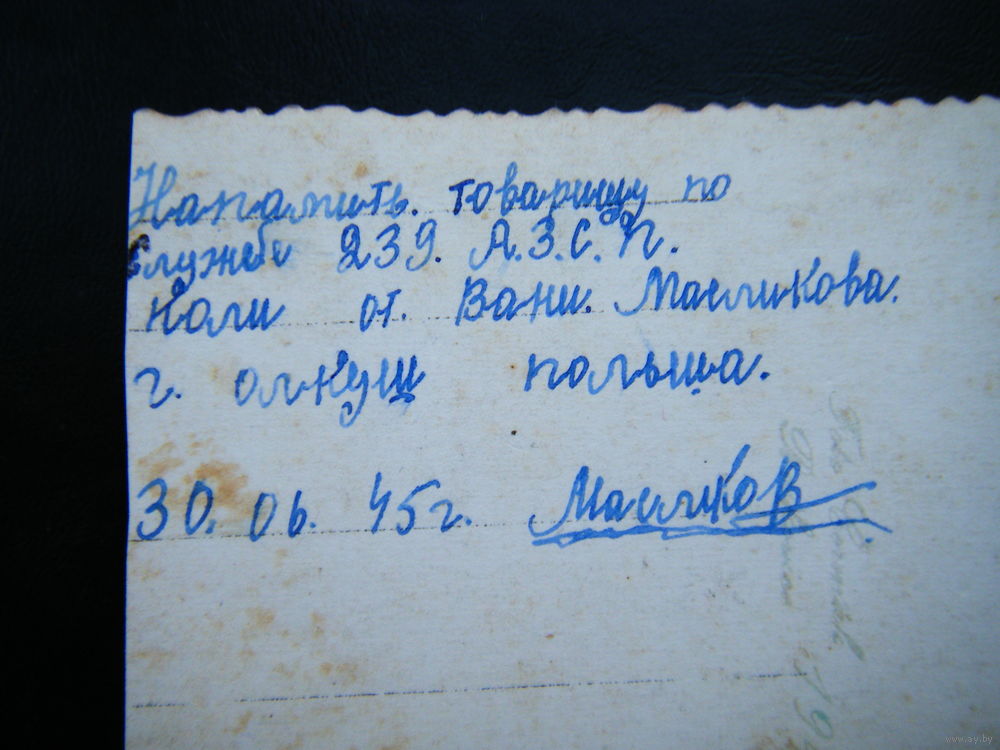 Напамить. товарищу по
службе 239. А.З.С.П.
Коли от. Вани. Масликова.
г. олкуш польша.
30. 06. 45г. Масликов
www.ay.by